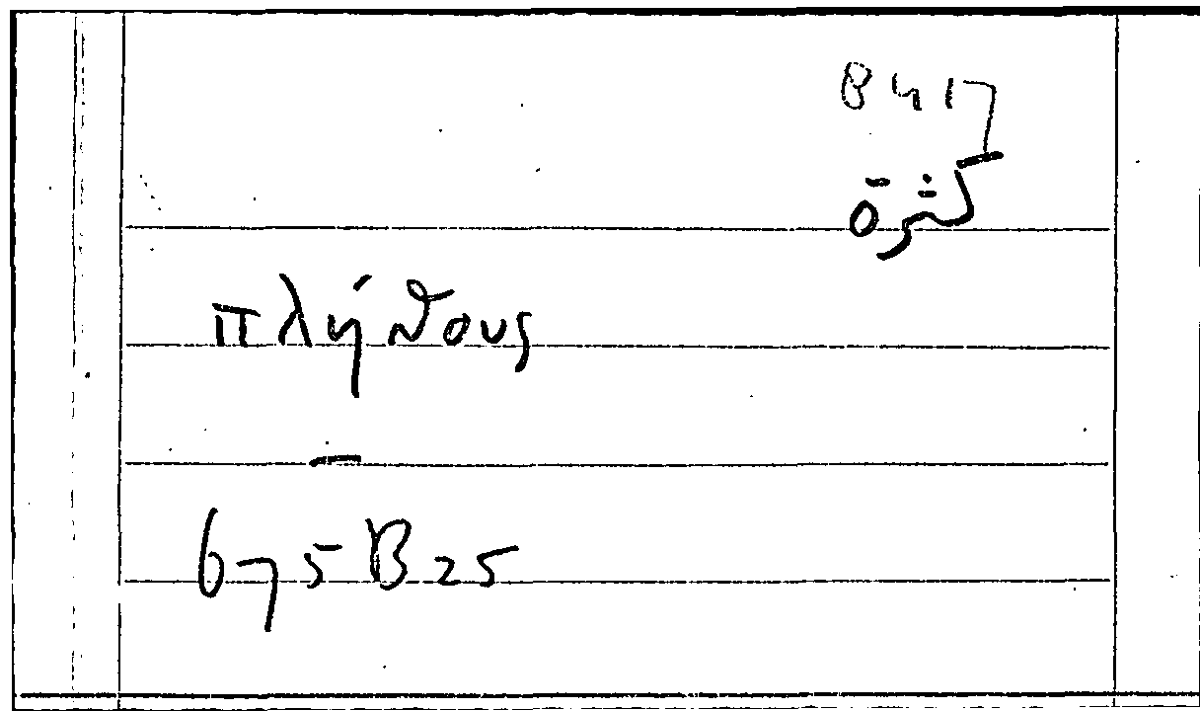 B417
πλήθους
—
675B25